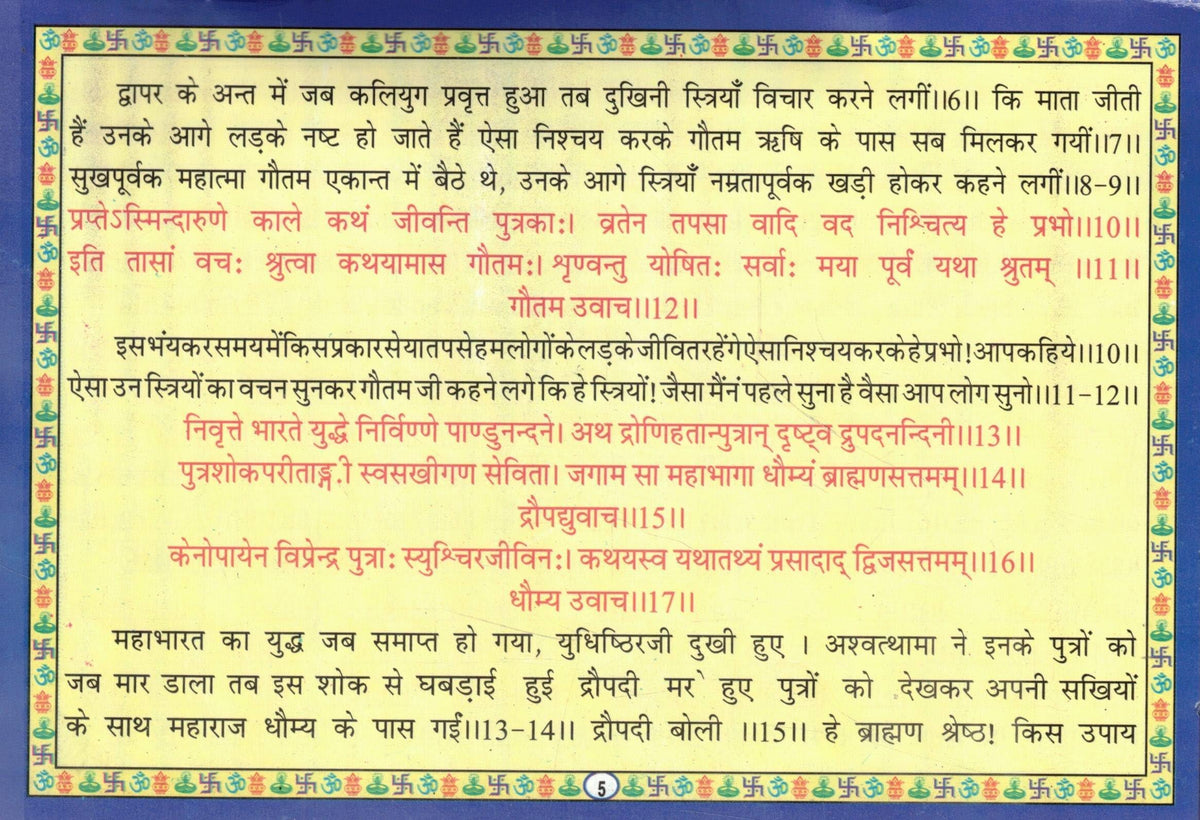 द्वापर के अन्त में जब कलियुग प्रवृत्त हुआ तब दुखिनी स्त्रियाँ विचार करने लगीं।।6।। कि माता जीती
हैं उनके आगे लड़के नष्ट हो जाते हैं ऐसा निश्चय करके गौतम ऋषि के पास सब मिलकर गयीं।।7।।
सुखपूर्वक महात्मा गौतम एकान्त में बैठे थे, उनके आगे स्त्रियाँ नम्रतापूर्वक खड़ी होकर कहने लगीं।।8-9।।
प्रप्तेऽस्मिन्दारुणे काले कथं जीवन्ति पुत्रकाः। व्रतेन तपसा वादि वद निश्चित्य हे प्रभो।।10।।
इति तासां वचः श्रुत्वा कथयामास गौतमः। शृण्वन्तु योषितः सर्वाः मया पूर्वं यथा श्रुतम् ।।11।।
गौतम उवाच।।12।।
इस भंयकर समय में किस प्रकार से या तप से हम लोगों के लड़के जीवित रहेंगे ऐसा निश्चय करके हे प्रभो! आप कहिये।।10।।
ऐसा उन स्त्रियों का वचन सुनकर गौतम जी कहने लगे कि हे स्त्रियों! जैसा मैंनं पहले सुना है वैसा आप लोग सुनो।।11-12।।
निवृत्ते भारते युद्धे निर्विण्णे पाण्डुनन्दने। अथ द्रोणिहतान्पुत्रान् दृष्ट्व द्रुपदनन्दिनी।।13।।
पुत्रशोकपरीताङ्ग.ी स्वसखीगण सेविता। जगाम सा महाभागा धौम्यं ब्राह्मणसत्तमम्।।14।।
द्रौपद्युवाच।।15।।
केनोपायेन विप्रेन्द्र पुत्राः स्युश्चिरजीविनः। कथयस्व यथातथ्यं प्रसादाद् द्विजसत्तमम्।।16।।
धौम्य उवाच।।17।।
महाभारत का युद्ध जब समाप्त हो गया, युधिष्ठिरजी दुखी हुए । अश्वत्थामा ने इनके पुत्रों को
जब मार डाला तब इस शोक से घबड़ाई हुई द्रौपदी मरे हुए पुत्रों को देखकर अपनी सखियों
के साथ महाराज धौम्य के पास गईं।।13-14।। द्रौपदी बोली ।।15।। हे ब्राह्मण श्रेष्ठ! किस उपाय
5